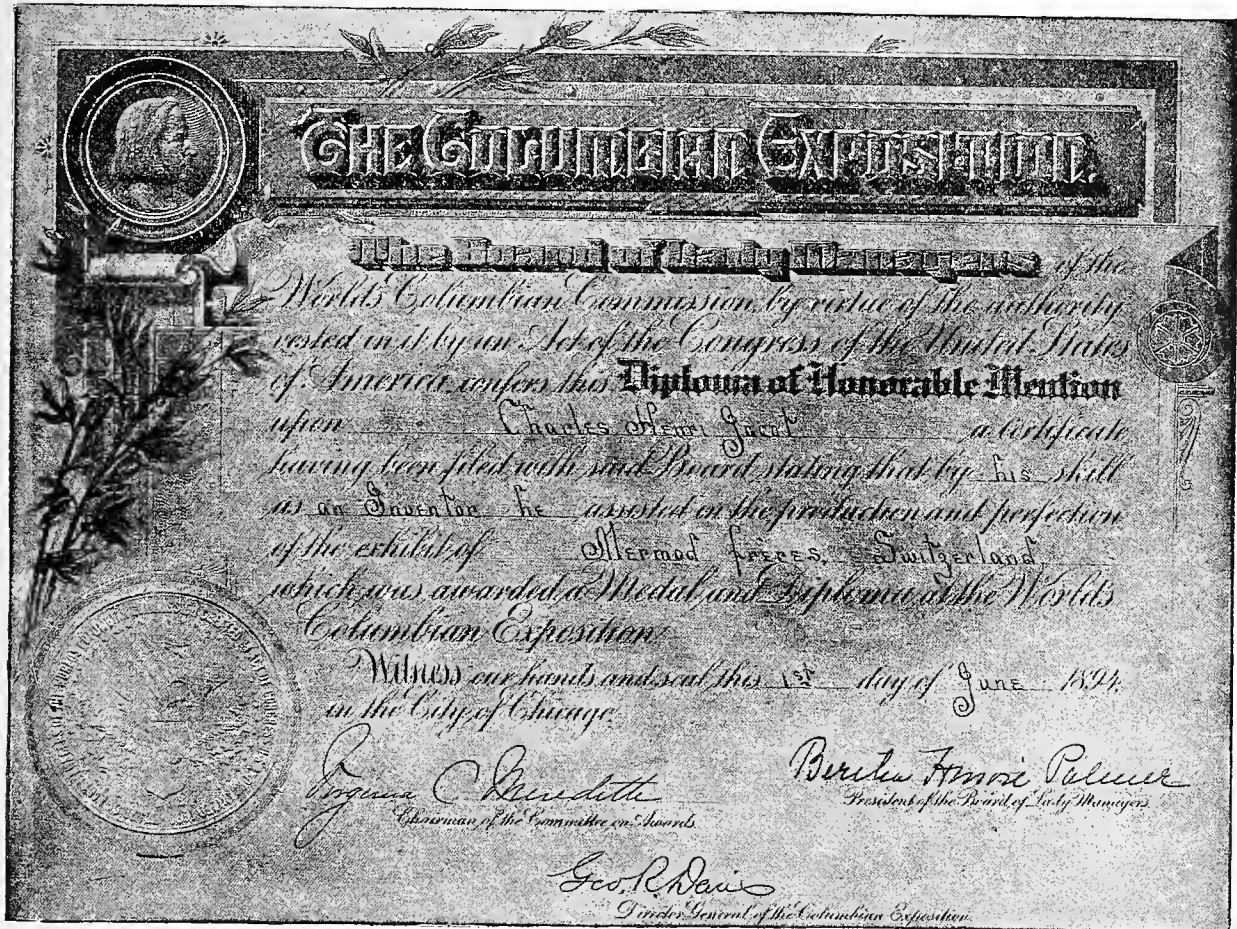 The Columbian Exposition.
The Board of Lady Managers of the
Worlds Columbian Commission, by virtue of the authority
vested in it by an Act of the Congress of the United States
of America confers this Diploma of Honorable Mention
upon Charles Henri Jacot a certificate
having been filed with said Board stating that by his skill
as an Inventor he assisted in the production and perfection
of the exhibit of Mermod Freres, Switzerland,
which was awarded a Medal and Diploma at the Worlds
Columbian Exposition
Witness our hands and seal this 1st day of June 1894.
in the City of Chicago.
Virginia C Meredith
Chairman of the Committee on Awards.
Bertha Honoré Palmer
President of the Board of Lady Managers.
Geo. R. Davis
Director General of the Columbian Exposition.